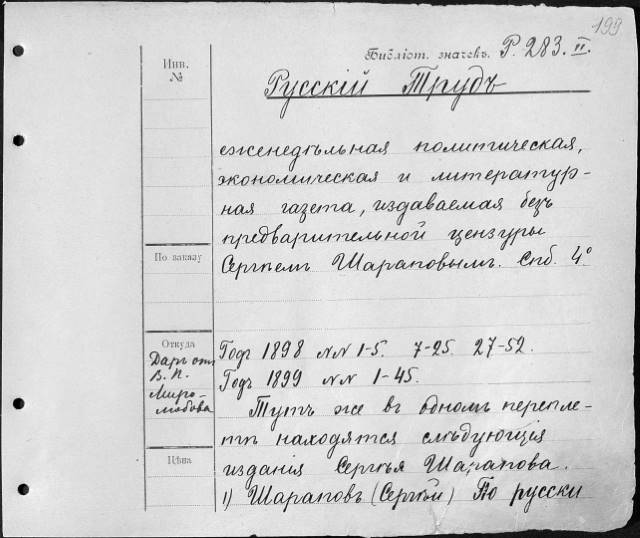 199
Библіот. значекъ. Р. 283. II.
Инв.
№
Русскій Трудъ
еженедѣльная политическая,
экономическая и литератур-
ная газета, издаваемая безъ
предварительной цензуры
По заказу
Сергѣемъ Шараповымъ. Спб. 4°
Откуда
Даръ отъ
В. П.
Миро-
любова
Годъ 1898 NN 1-5. 7-25. 27-52.
Годъ 1899 NN 1-45.
Тутъ же въ одномъ перепле-
тѣ находятся слѣдующія
Цѣна
изданія Сергѣя Шарапова.
1) Шараповъ (Сергѣй) По русски